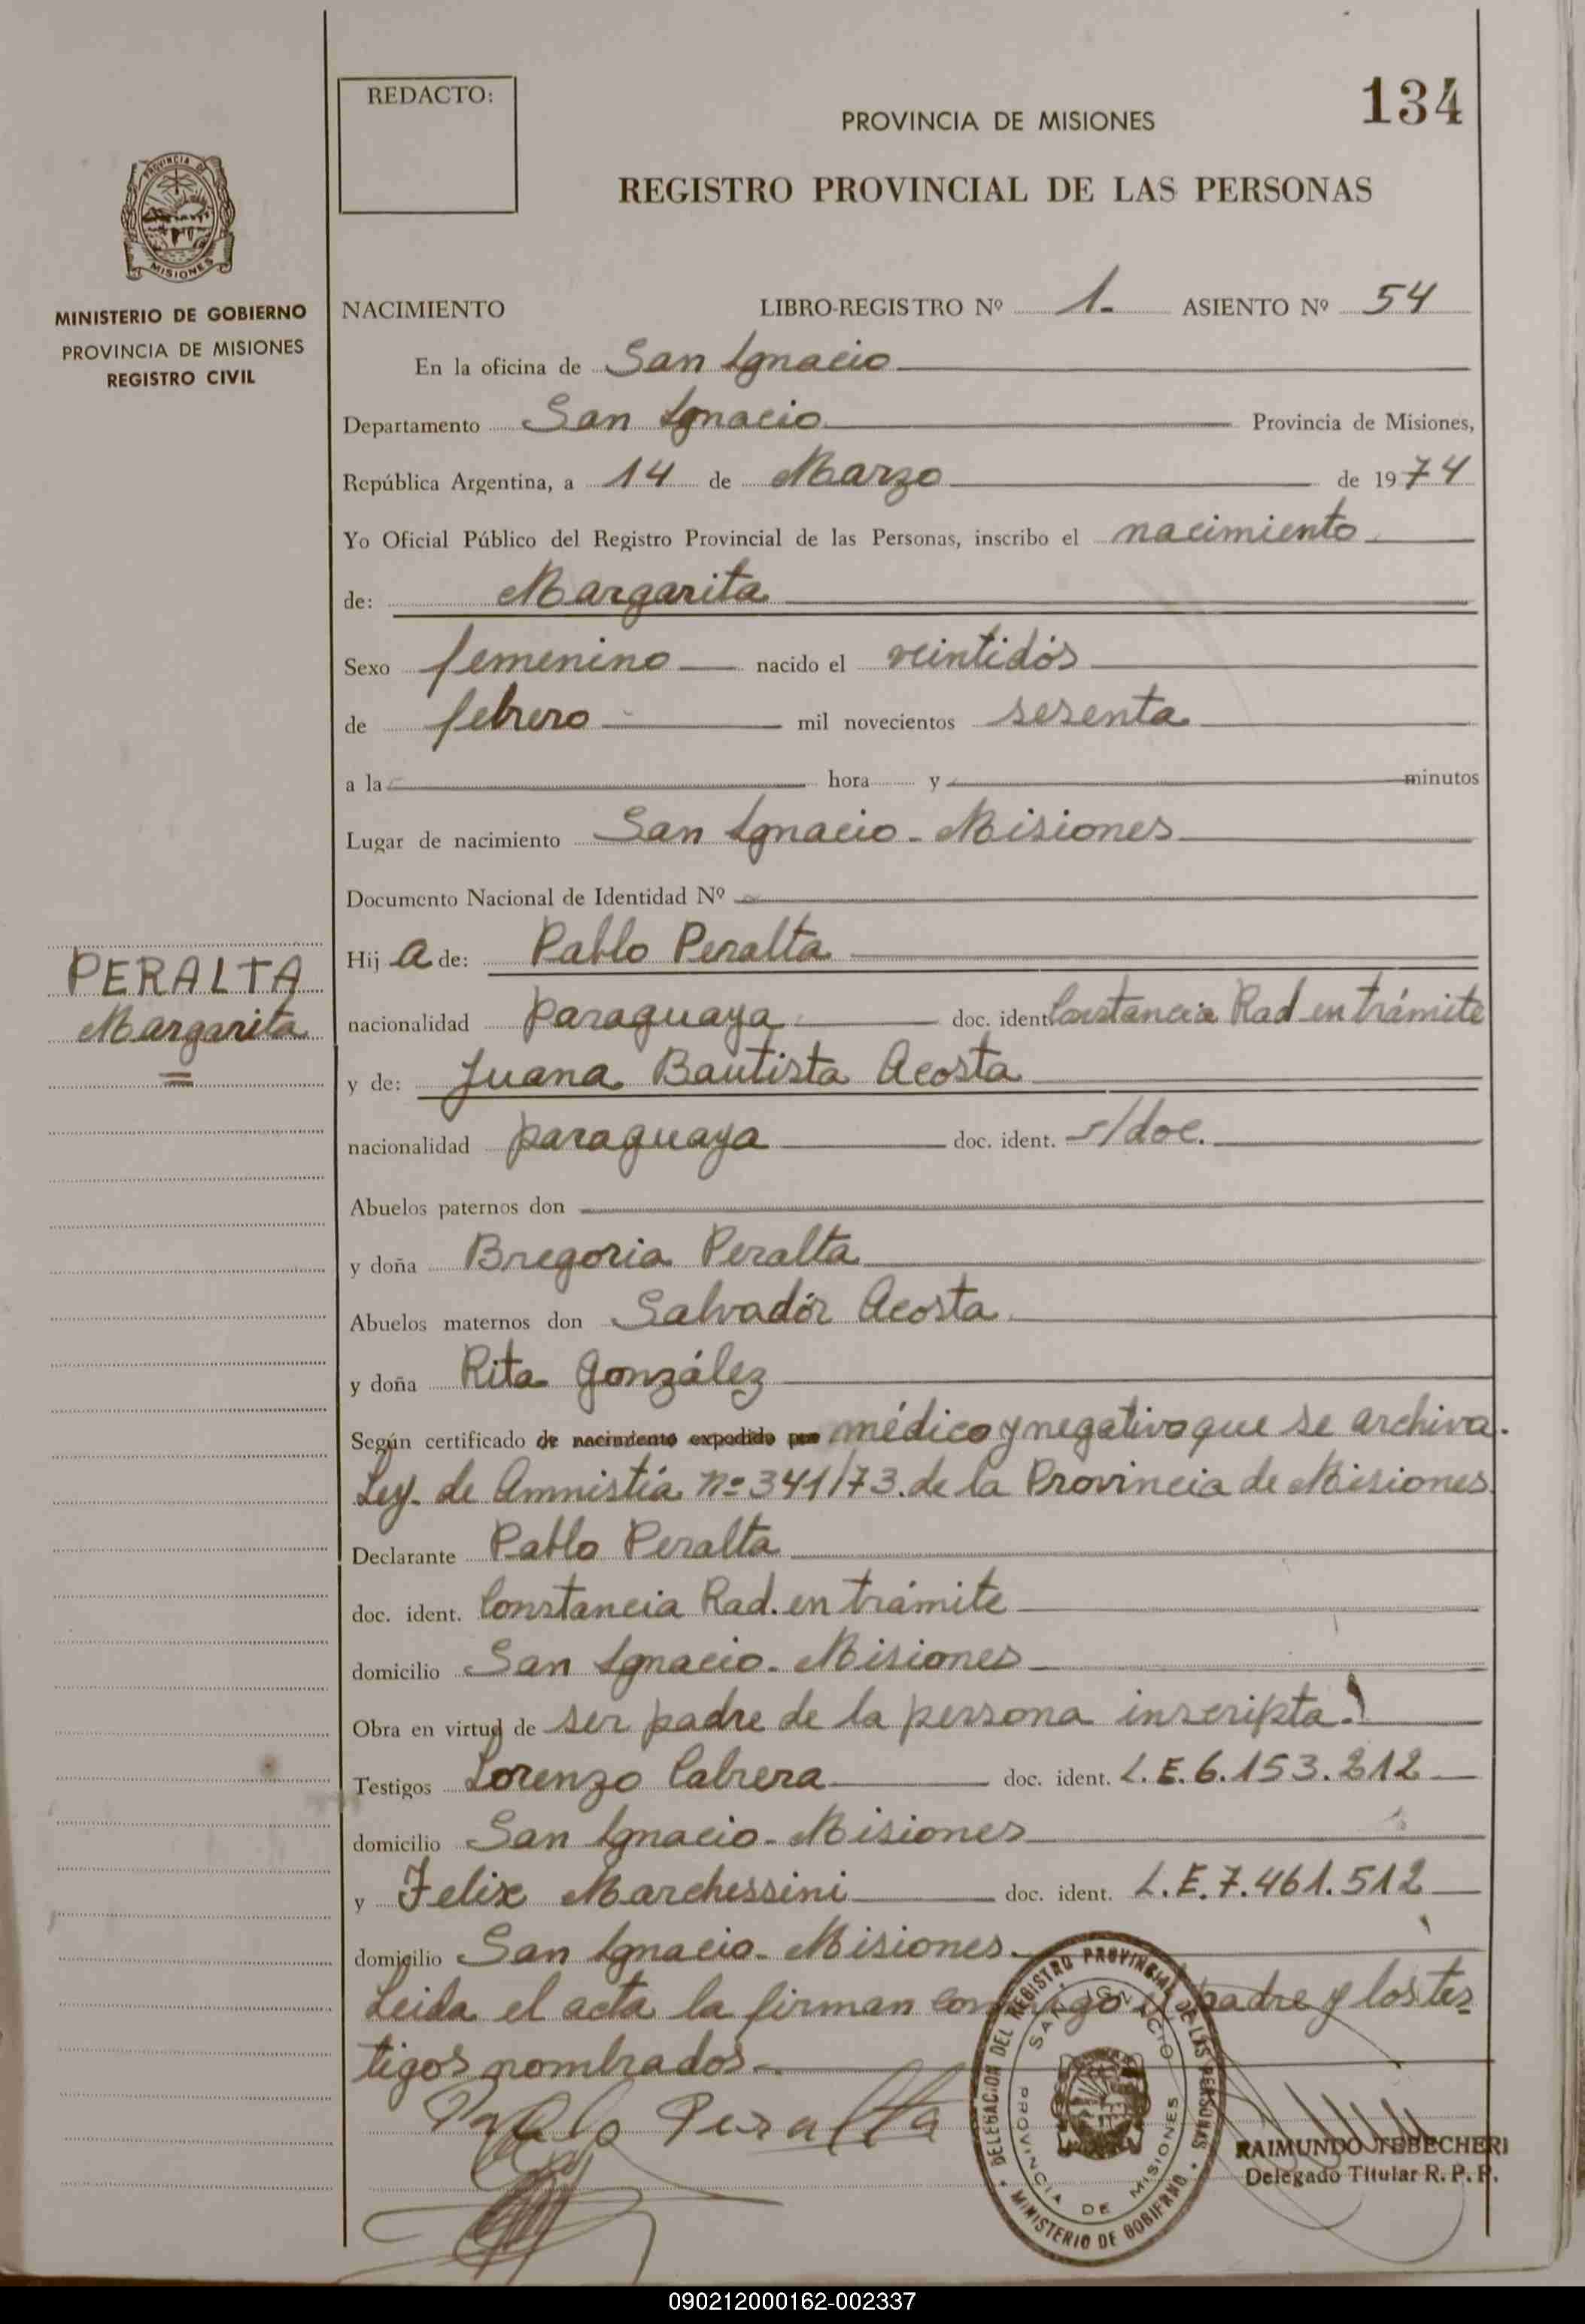 REDACTO:
134
PROVINCIA DE MISIONES
REGISTRO PROVINCIAL DE LAS PERSONAS
PROVINCIA DE
MISIONES
MINISTERIO DE GOBIERNO
PROVINCIA DE MISIONES
REGISTRO CIVIL
NACIMIENTO LIBRO-REGISTRO Nº 1.- ASIENTO Nº 54
En la oficina de San Ignacio
Departamento San Ignacio Provincia de Misiones,
República Argentina, a 14 de Marzo de 1974
Yo Oficial Público del Registro Provincial de las Personas, inscribo el nacimiento
de: Margarita
Sexo femenino nacido el veintidós
de febrero mil novecientos sesenta
a la hora y minutos
Lugar de nacimiento San Ignacio - Misiones
Documento Nacional de Identidad Nº
Hij a de: Pablo Peralta
PERALTA
Margarita
nacionalidad paraguaya doc. ident. Constancia Rad en trámite
y de: Juana Bautista Acosta
nacionalidad paraguaya doc. ident. s/doc.
Abuelos paternos don
y doña Bregoria Peralta
Abuelos maternos don Salvadór Acosta
y doña Rita González
Según certificado de nacimiento expedido por médico y negativo que se archiva.
Ley. de Amnistía nº 341/73. de la Provincia de Misiones
Declarante Pablo Peralta
doc. ident. Constancia Rad. en trámite
domicilio San Ignacio - Misiones
Obra en virtud de ser padre de la persona inscripta.
Testigos Lorenzo Cabrera doc. ident. L.E. 6.153.212
domicilio San Ignacio - Misiones
y Felix Marchessini doc. ident. L.E. 7.461.512
domicilio San Ignacio - Misiones.
Leida el acta la firman conmigo el padre y los tes
tigos nombrados.-
Pablo Peralta
DELEGACION DEL REGISTRO PROVINCIAL DE LAS PERSONAS
SAN IGNACIO
PROVINCIA DE MISIONES
MINISTERIO DE GOBIERNO
RAIMUNDO TEBECHERI
Delegado Titular R. P. P.
090212000162-002337